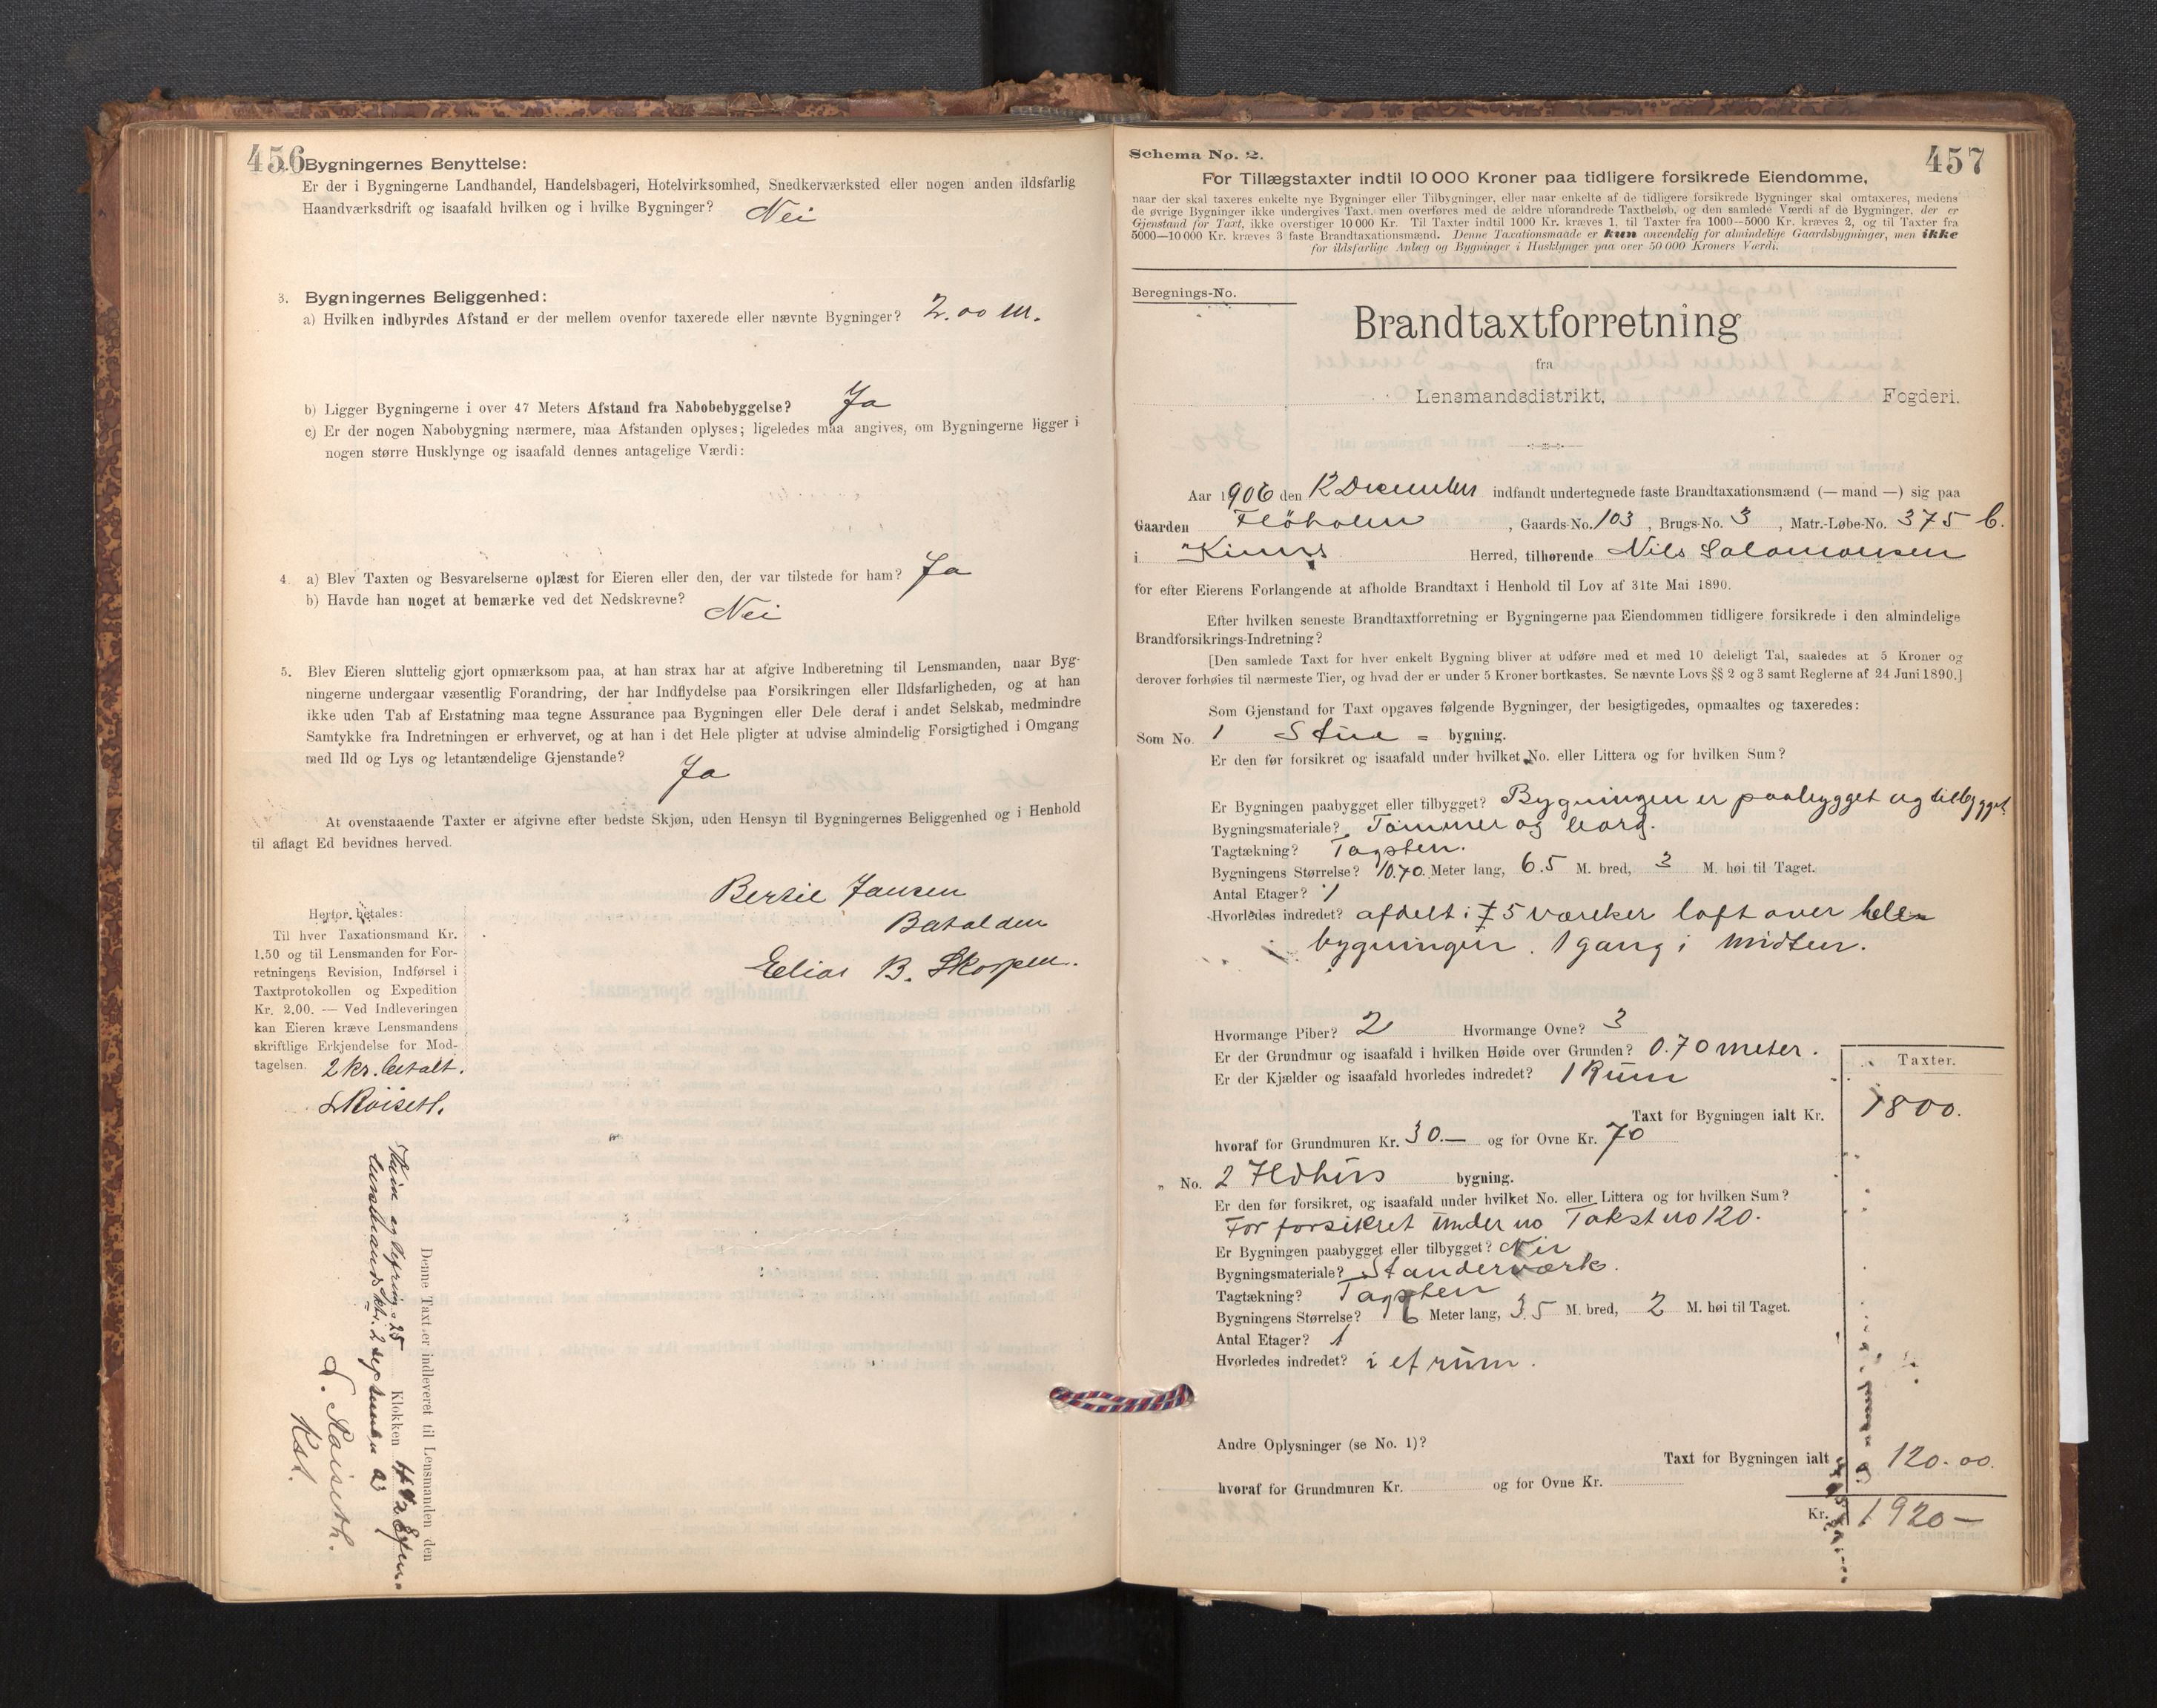 456
Bygningernes Benyttelse:
Er der i Bygningerne Landhandel, Handelsbageri, Hotelvirksomhed, Snedkerværksted eller nogen anden ildsfarlig
Haandværksdrift og isaafald hvilken og i hvilke Bygninger? Nei
3. Bygningernes Beliggenhed:
a) Hvilken indbyrdes Afstand er der mellem ovenfor taxerede eller nævnte Bygninger? 2.00 m.
b) Ligger Bygningerne i over 47 Meters Afstand fra Nabobebyggelse? Ja
c) Er der nogen Nabobygning nærmere, maa Afstanden oplyses; ligeledes maa angives, om Bygningerne ligger i
nogen større Husklynge og isaafald dennes antagelige Værdi:
4. a) Blev Taxten og Besvarelserne oplæst for Eieren eller den, der var tilstede for ham? Ja
b) Havde han noget at bemærke ved det Nedskrevne? Nei
5. Blev Eieren sluttelig gjort opmærksom paa, at han strax har at afgive Indberetning til Lensmanden, naar Byg-
ningerne undergaar væsentlig Forandring, der har Indflydelse paa Forsikringen eller Ildsfarligheden, og at han
ikke uden Tab af Erstatning maa tegne Assurance paa Bygningen eller Dele deraf i andet Selskab, medmindre
Samtykke fra Indretningen er erhvervet, og at han i det Hele pligter at udvise almindelig Forsigtighed i Omgang
med Ild og Lys og letantændelige Gjenstande? Ja
At ovenstaaende Taxter er afgivne efter bedste Skjøn, uden Hensyn til Bygningernes Beliggenhed og i Henhold
til aflagt Ed bevidnes herved.
Bertil Jansen
Batalden
Elias B. Skorpen.
Herfor betales:
Til hver Taxationsmand Kr.
1.50 og til Lensmanden for For-
retningens Revision, Indførsel i
Taxtprotokollen og Expedition
Kr. 2.00. — Ved Indleveringen
kan Eieren kræve Lensmandens
skriftlige Erkjendelse for Mod-
tagelsen. 2 kr. betalt.
Denne Taxt er indleveret til Lensmanden den
Klokken
Schema No. 2.
457
For Tillægstaxter indtil 10 000 Kroner paa tidligere forsikrede Eiendomme,
naar der skal taxeres enkelte nye Bygninger eller Tilbygninger, eller naar enkelte af de tidligere forsikrede Bygninger skal omtaxeres, medens
de øvrige Bygninger ikke undergives Taxt, men overføres med de ældre uforandrede Taxtbeløb, og den samlede Værdi af de Bygninger, der er
Gjenstand for Taxt, ikke overstiger 10 000 Kr. Til Taxter indtil 1000 Kr. kræves 1, til Taxter fra 1000—5000 Kr. kræves 2, og til Taxter fra
5000—10 000 Kr. kræves 3 faste Brandtaxationsmænd. Denne Taxationsmaade er kun anvendelig for almindelige Gaardsbygninger, men ikke
for ildsfarlige Anlæg og Bygninger i Husklynger paa over 50 000 Kroners Værdi.
Beregnings-No.
Brandtaxtforretning
fra
Lensmandsdistrikt, Fogderi.
Aar 1906 den 12 December indfandt undertegnede faste Brandtaxationsmænd (— mand —) sig paa
Gaarden Flöholm, Gaards-No. 103, Brugs-No. 3, Matr.-Løbe-No. 375 b.
i Kinns Herred, tilhørende Nils Salamonsen
for efter Eierens Forlangende at afholde Brandtaxt i Henhold til Lov af 31te Mai 1890.
Efter hvilken seneste Brandtaxtforretning er Bygningerne paa Eiendommen tidligere forsikrede i den almindelige
Brandforsikrings-Indretning?
[Den samlede Taxt for hver enkelt Bygning bliver at udføre med et med 10 deleligt Tal, saaledes at 5 Kroner og
derover forhøies til nærmeste Tier, og hvad der er under 5 Kroner bortkastes. Se nævnte Lovs §§ 2 og 3 samt Reglerne af 24 Juni 1890.]
Som Gjenstand for Taxt opgaves følgende Bygninger, der besigtigedes, opmaaltes og taxeredes:
Som No. 1 Stue = bygning.
Er den før forsikret og isaafald under hvilket No. eller Littera og for hvilken Sum?
Er Bygningen paabygget eller tilbygget? Bygningen er paabygget og tilbygget
Bygningsmateriale? Tömmer og bord.
Tagtækning? Tagsten.
Bygningens Størrelse? 10.70. Meter lang, 6.5 M. bred, 3 M. høi til Taget.
Antal Etager? 1
Hvorledes indredet? afdelt i 5 værelser loft over hele
bygningen. 1 gang i midten.
Hvormange Piber? 2 Hvormange Ovne? 3
Er der Grundmur og isaafald i hvilken Høide over Grunden? 0.70 meter.
Er der Kjælder og isaafald hvorledes indredet? 1 Rum
Taxter.
Taxt for Bygningen ialt Kr. 1800.
hvoraf for Grundmuren Kr. 30.— og for Ovne Kr. 70
" No. 2 Ildhus bygning.
Er den før forsikret, og isaafald under hvilket No. eller Littera og for hvilken Sum?
För forsikret under no Takst no 120.
Er Bygningen paabygget eller tilbygget? Nei
Bygningsmateriale? Standerværk.
Tagtækning? Tagsten
Bygningens Størrelse? 6 Meter lang, 3.5 M. bred, 2 M. høi til Taget.
Antal Etager? 1
Hvorledes indredet? i et rum.
Andre Oplysninger (se No. 1)?
Taxt for Bygningen ialt 120.00.
hvoraf for Grundmuren Kr. og for Ovne Kr.
Kr. 1920—